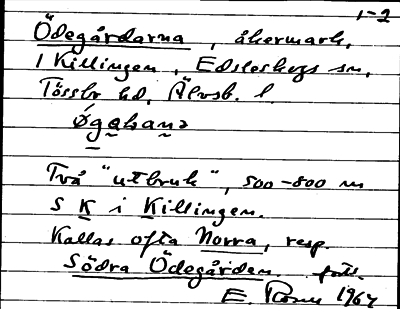 1-2
Ödegårdarna, åkermark,
1 Killingen, Edsleskogs sn,
Tössbo hd, Älvsb. l.
øgahanə
Två "utbruk", 500-800 m
S K i Killingen.
Kallas ofta Norra, resp.
Södra Ödegården. forts.
E. 1967